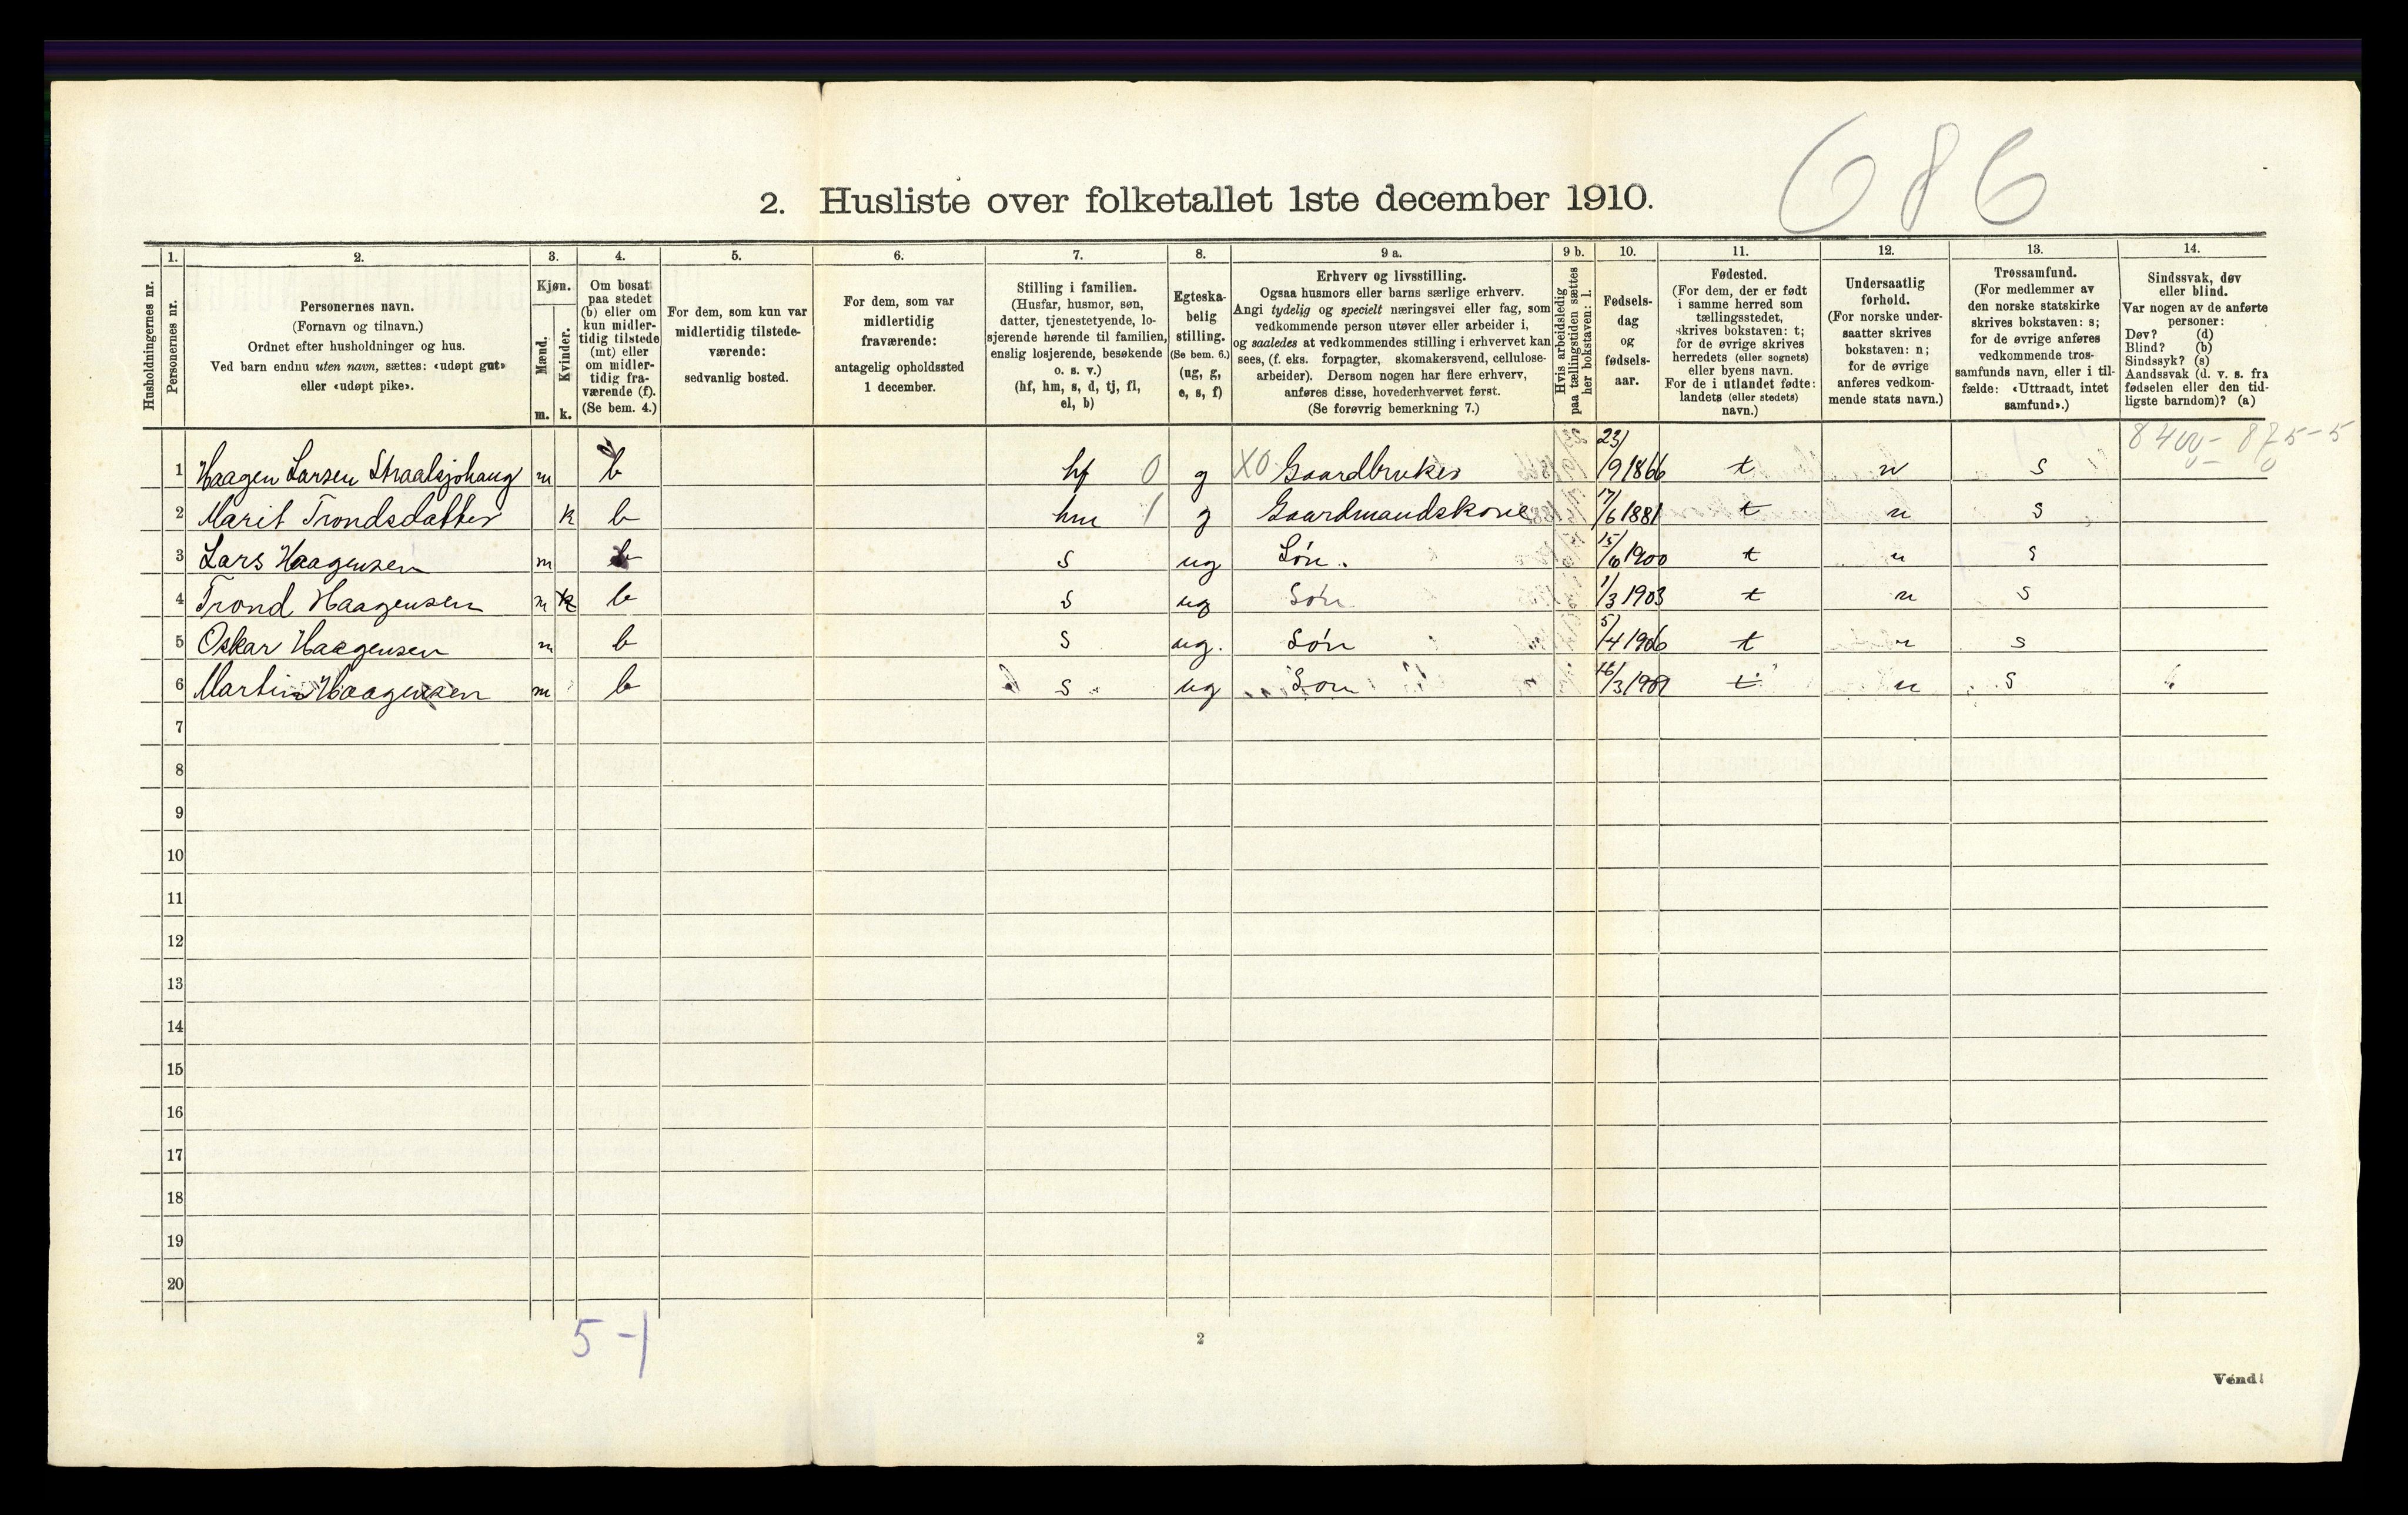 686
2. Husliste over folketallet 1ste december 1910.
Husholdningernes nr.
1.
Personernes nr.
2.
Personernes navn.
(Fornavn og tilnavn.)
Ordnet efter husholdninger og hus.
Ved barn endnu uten navn, sættes: «udøpt gut»
eller «udøpt pike».
3.
Kjøn.
Mænd.
m.
Kvinder.
k.
4.
Om bosat
paa stedet
(b) eller om
kun midler-
tidig tilstede
(mt) eller
om midler-
tidig fra-
værende (f).
(Se bem. 4.)
5.
For dem, som kun var
midlertidig tilstede-
værende:
sedvanlig bosted.
6.
For dem, som var
midlertidig
fraværende:
antagelig opholdssted
1 december.
7.
Stilling i familien.
(Husfar, husmor, søn,
datter, tjenestetyende, lo-
sjerende hørende til familien,
enslig losjerende, besøkende
o. s. v.)
(hf, hm, s, d, tj, fl,
el, b)
8.
Egteska-
belig
stilling.
(Se bem. 6.)
(ug, g,
e, s, f)
9 a.
Erhverv og livsstilling.
Ogsaa husmors eller barns særlige erhverv.
Angi tydelig og specielt næringsvei eller fag, som
vedkommende person utøver eller arbeider i,
og saaledes at vedkommendes stilling i erhvervet kan
sees, (f. eks. forpagter, skomakersvend, cellulose-
arbeider). Dersom nogen har flere erhverv,
anføres disse, hovederhvervet først.
(Se forøvrig bemerkning 7.)
9 b.
Hvis arbeidsledig
paa tællingstiden sættes
her bokstaven: l.
10.
Fødsels-
dag
og
fødsels-
aar.
11.
Fødested.
(For dem, der er født
i samme herred som
tællingsstedet,
skrives bokstaven: t;
for de øvrige skrives
herredets (eller sognets)
eller byens navn.
For de i utlandet fødte:
landets (eller stedets)
navn.)
12.
Undersaatlig
forhold.
(For norske under-
saatter skrives
bokstaven: n;
for de øvrige
anføres vedkom-
mende stats navn.)
13.
Trossamfund.
(For medlemmer av
den norske statskirke
skrives bokstaven: s;
for de øvrige anføres
vedkommende tros-
samfunds navn, eller i til-
fælde: «Uttraadt, intet
samfund».)
14.
Sindssvak, døv
eller blind.
Var nogen av de anførte
personer:
Døv? (d)
Blind? (b)
Sindssyk? (s)
Aandssvak (d. v. s. fra
fødselen eller den tid-
ligste barndom)? (a)
1 Haagen Larsen Straalsjohaug m b hf 0 g X0 Gaardbruker 23/9 1866 t n s
2 Marit Trondsdatter k b hm 1 g Gaardmandskone 17/6 1881 t n s
3 Lars Haagensen m b s ug Søn. 15/6 1900 t n s
4 Trond Haagensen m k b s ug Søn 1/3 1903 t n s
5 Oskar Haagensen m b s ug. Søn 5/4 1906 t n s
6 Martin Haagensen m b s ug Søn t n s
7
8
9
10
11
12
13
14
15
16
17
18
19
20
5-1
2
Vend!